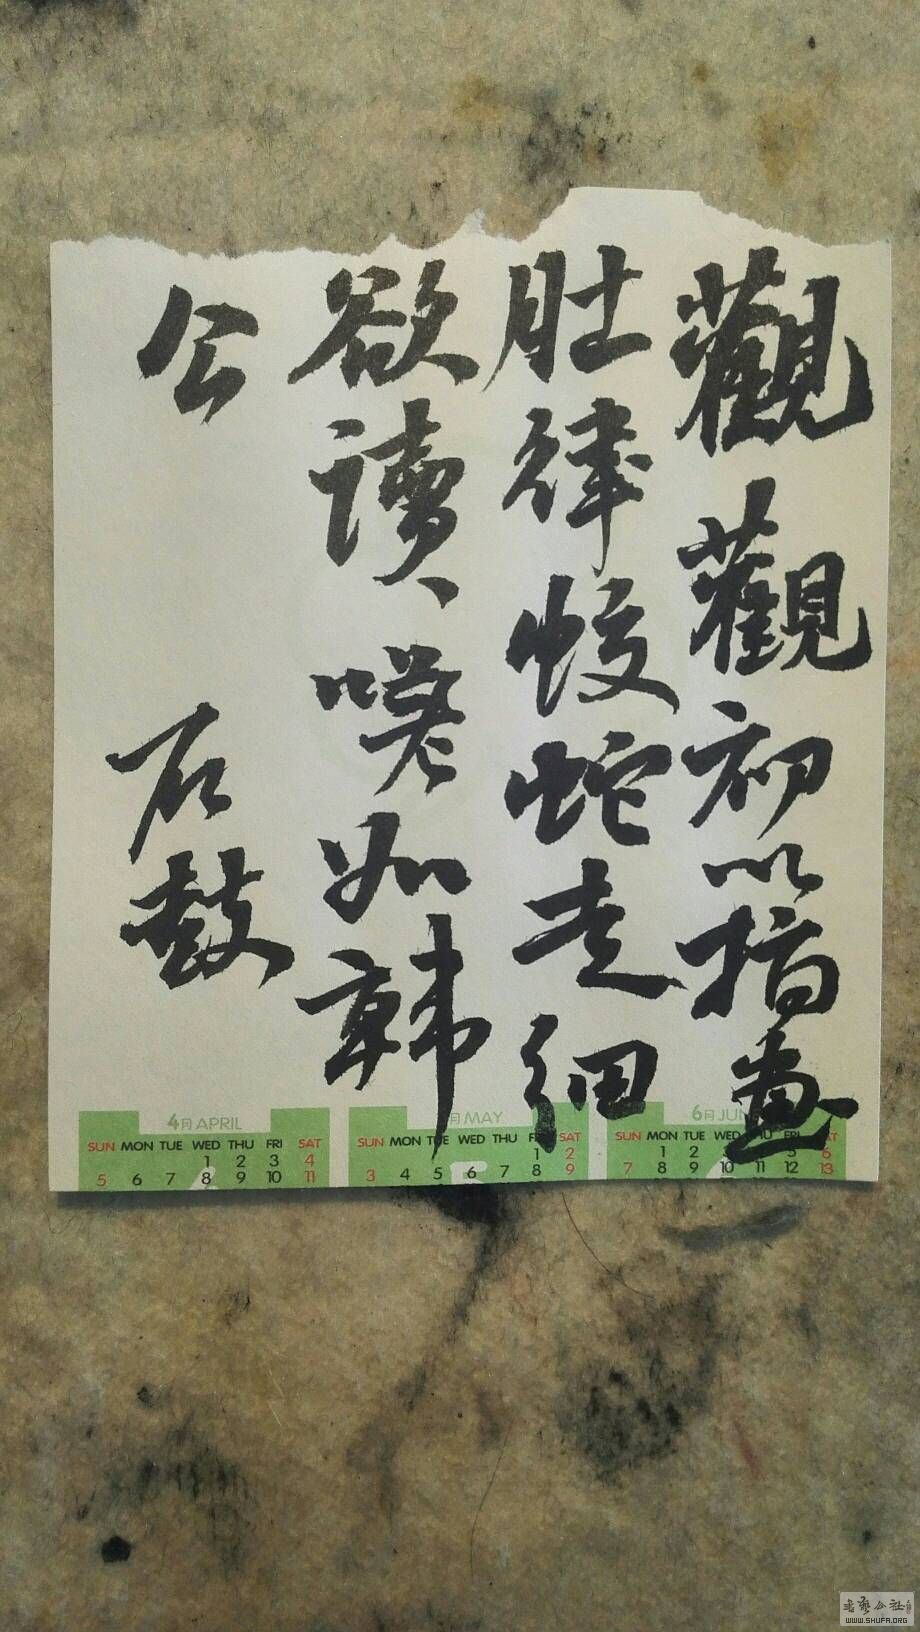 觀觀初以指畫
肚律蛟蛇走細
欲讀嘆如韓
公
石鼓
4月 APRIL
SUN MON TUE WED THU FRI SAT
1 2 3 4
5 6 7 8 9 10 11
月 MAY
SUN MON TUE WED THU FRI SAT
1 2
3 4 5 6 7 8 9
6月 JUN
SUN MON TUE WED THU FRI SAT
1 2 3 4 5 6
7 8 9 10 11 12 13
书法公社
WWW.SHUFA.ORG